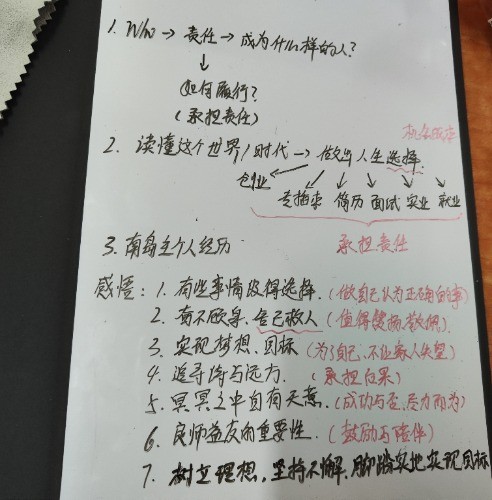 1. Who → 责任 → 成为什么样的人?
↓
如何履行?
(承担责任)
机会成本
2. 读懂这个世界/时代 → 做出人生选择.
创业 专插本 简历 面试 实业 就业
3. 南岛主个人经历 承担责任
感悟: 1. 有些事情没得选择. (做自己认为正确的事)
2. 奋不顾身、舍己救人 (值得赞扬、敬佩)
3. 实现梦想、目标 (为了自己,不让家人失望)
4. 追寻诗与远方. (承担后果)
5. 冥冥之中自有天意. (成功与否,尽力而为)
6. 良师益友的重要性. (鼓励与陪伴)
7. 树立理想,坚持不懈,脚踏实地实现目标